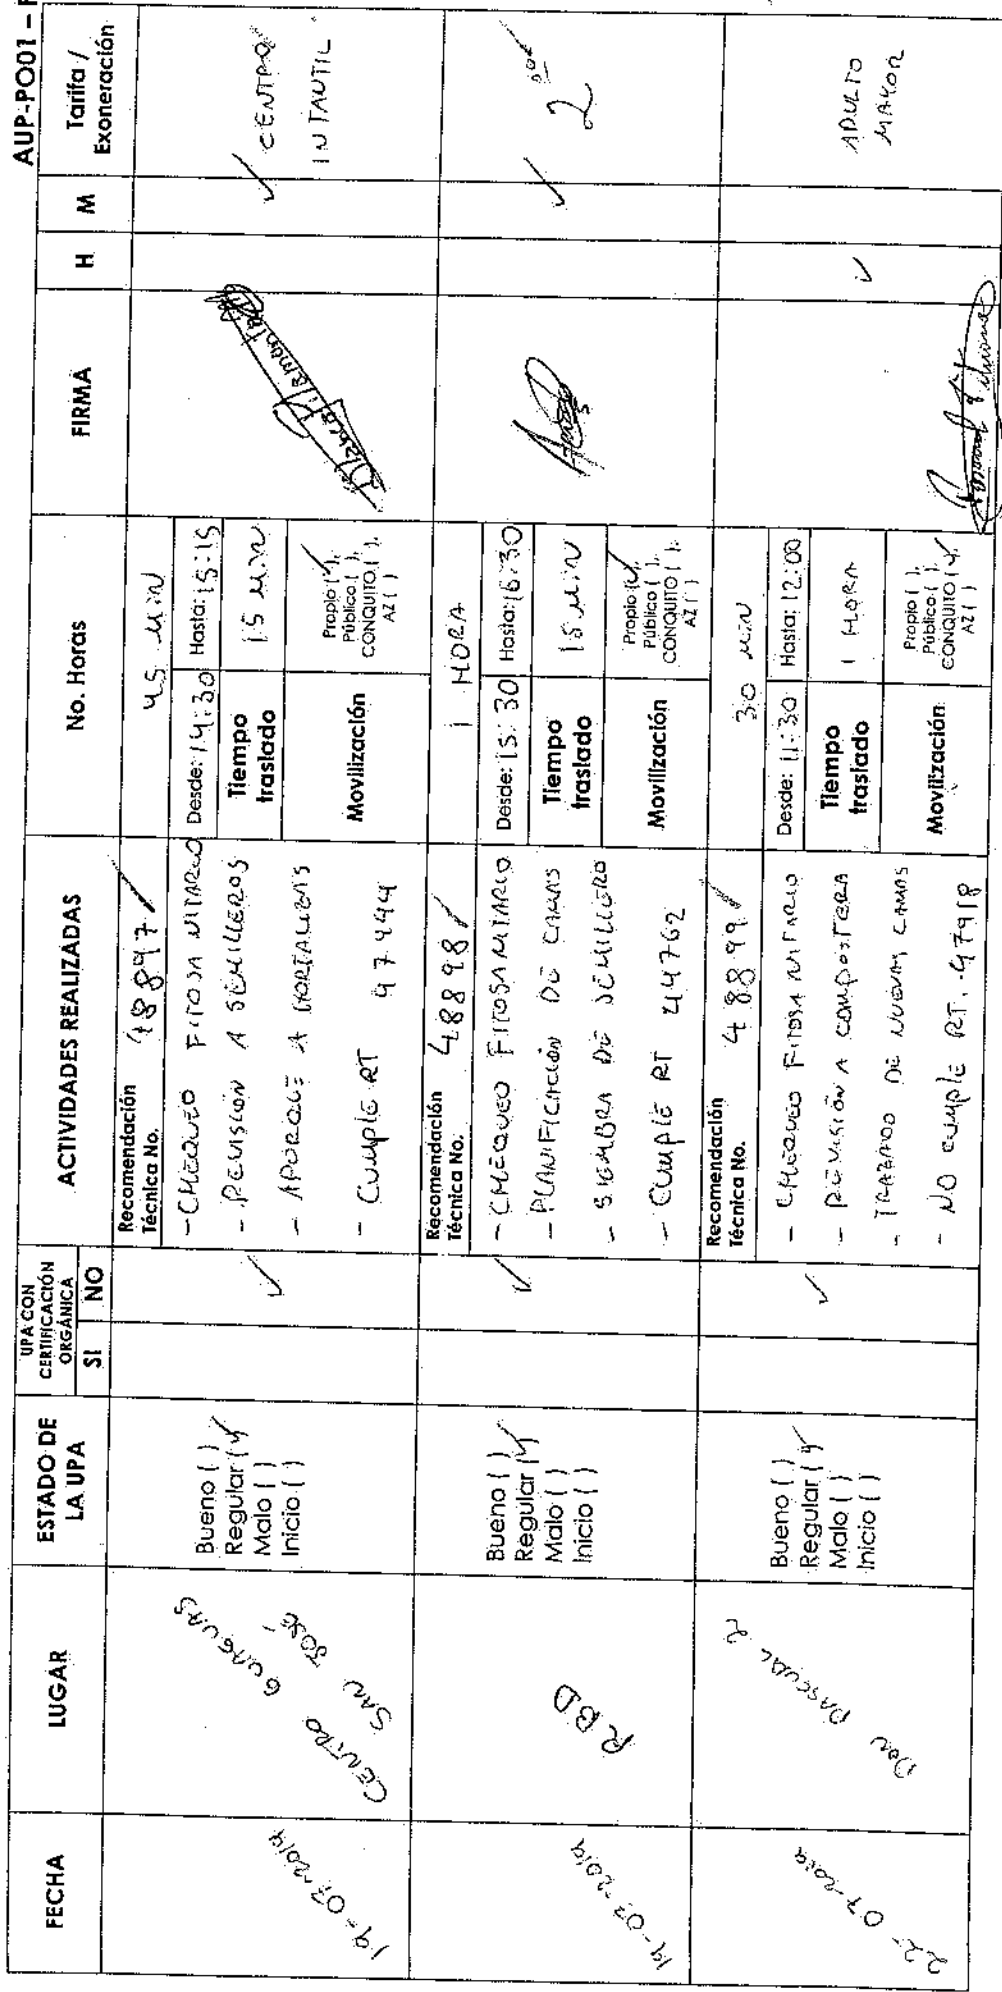 AUP-PO01 –
FECHA
LUGAR
ESTADO DE
LA UPA
UPA CON
CERTIFICACIÓN
ORGÁNICA
SI
NO
ACTIVIDADES REALIZADAS
No. Horas
FIRMA
H
M
Tarifa /
Exoneración
19-07-2019
CENTRO GUAGUAS
SAN JOSÉ
Bueno ( )
Regular (✓)
Malo ( )
Inicio ( )
✓
Recomendación
Técnica No.
48897
- CHEQUEO FITOSANITARIO
- REVISIÓN A SEMILLEROS
- APORQUE A HORTALIZAS
- CUMPLE RT 47444
45 MIN
Desde: 14:30
Hasta: 15:15
Tiempo
traslado
15 MIN
Movilización
Propio (✓),
Público ( ),
CONQUITO ( ),
AZ ( )
✓
CENTRO
INFANTIL
19-07-2019
RBD
Bueno ( )
Regular (✓)
Malo ( )
Inicio ( )
✓
Recomendación
Técnica No.
48898
- CHEQUEO FITOSANITARIO
- PLANIFICACIÓN DE CAMAS
- SIEMBRA DE SEMILLERO
- CUMPLE RT 44762
1 HORA
Desde: 15:30
Hasta: 16:30
Tiempo
traslado
15 MIN
Movilización
Propio (✓),
Público ( ),
CONQUITO ( ),
AZ ( )
✓
2
22-07-2019
DON PASCUAL 2
Bueno ( )
Regular (✓)
Malo ( )
Inicio ( )
✓
Recomendación
Técnica No.
48899
- CHEQUEO FITOSANITARIO
- REVISIÓN A COMPOSTERA
- TRAZADO DE NUEVAS CAMAS
- NO CUMPLE RT. 47918
30 MIN
Desde: 11:30
Hasta: 12:00
Tiempo
traslado
1 HORA
Movilización
Propio ( ),
Público ( ),
CONQUITO (✓),
AZ ( )
✓
ADULTO
MAYOR